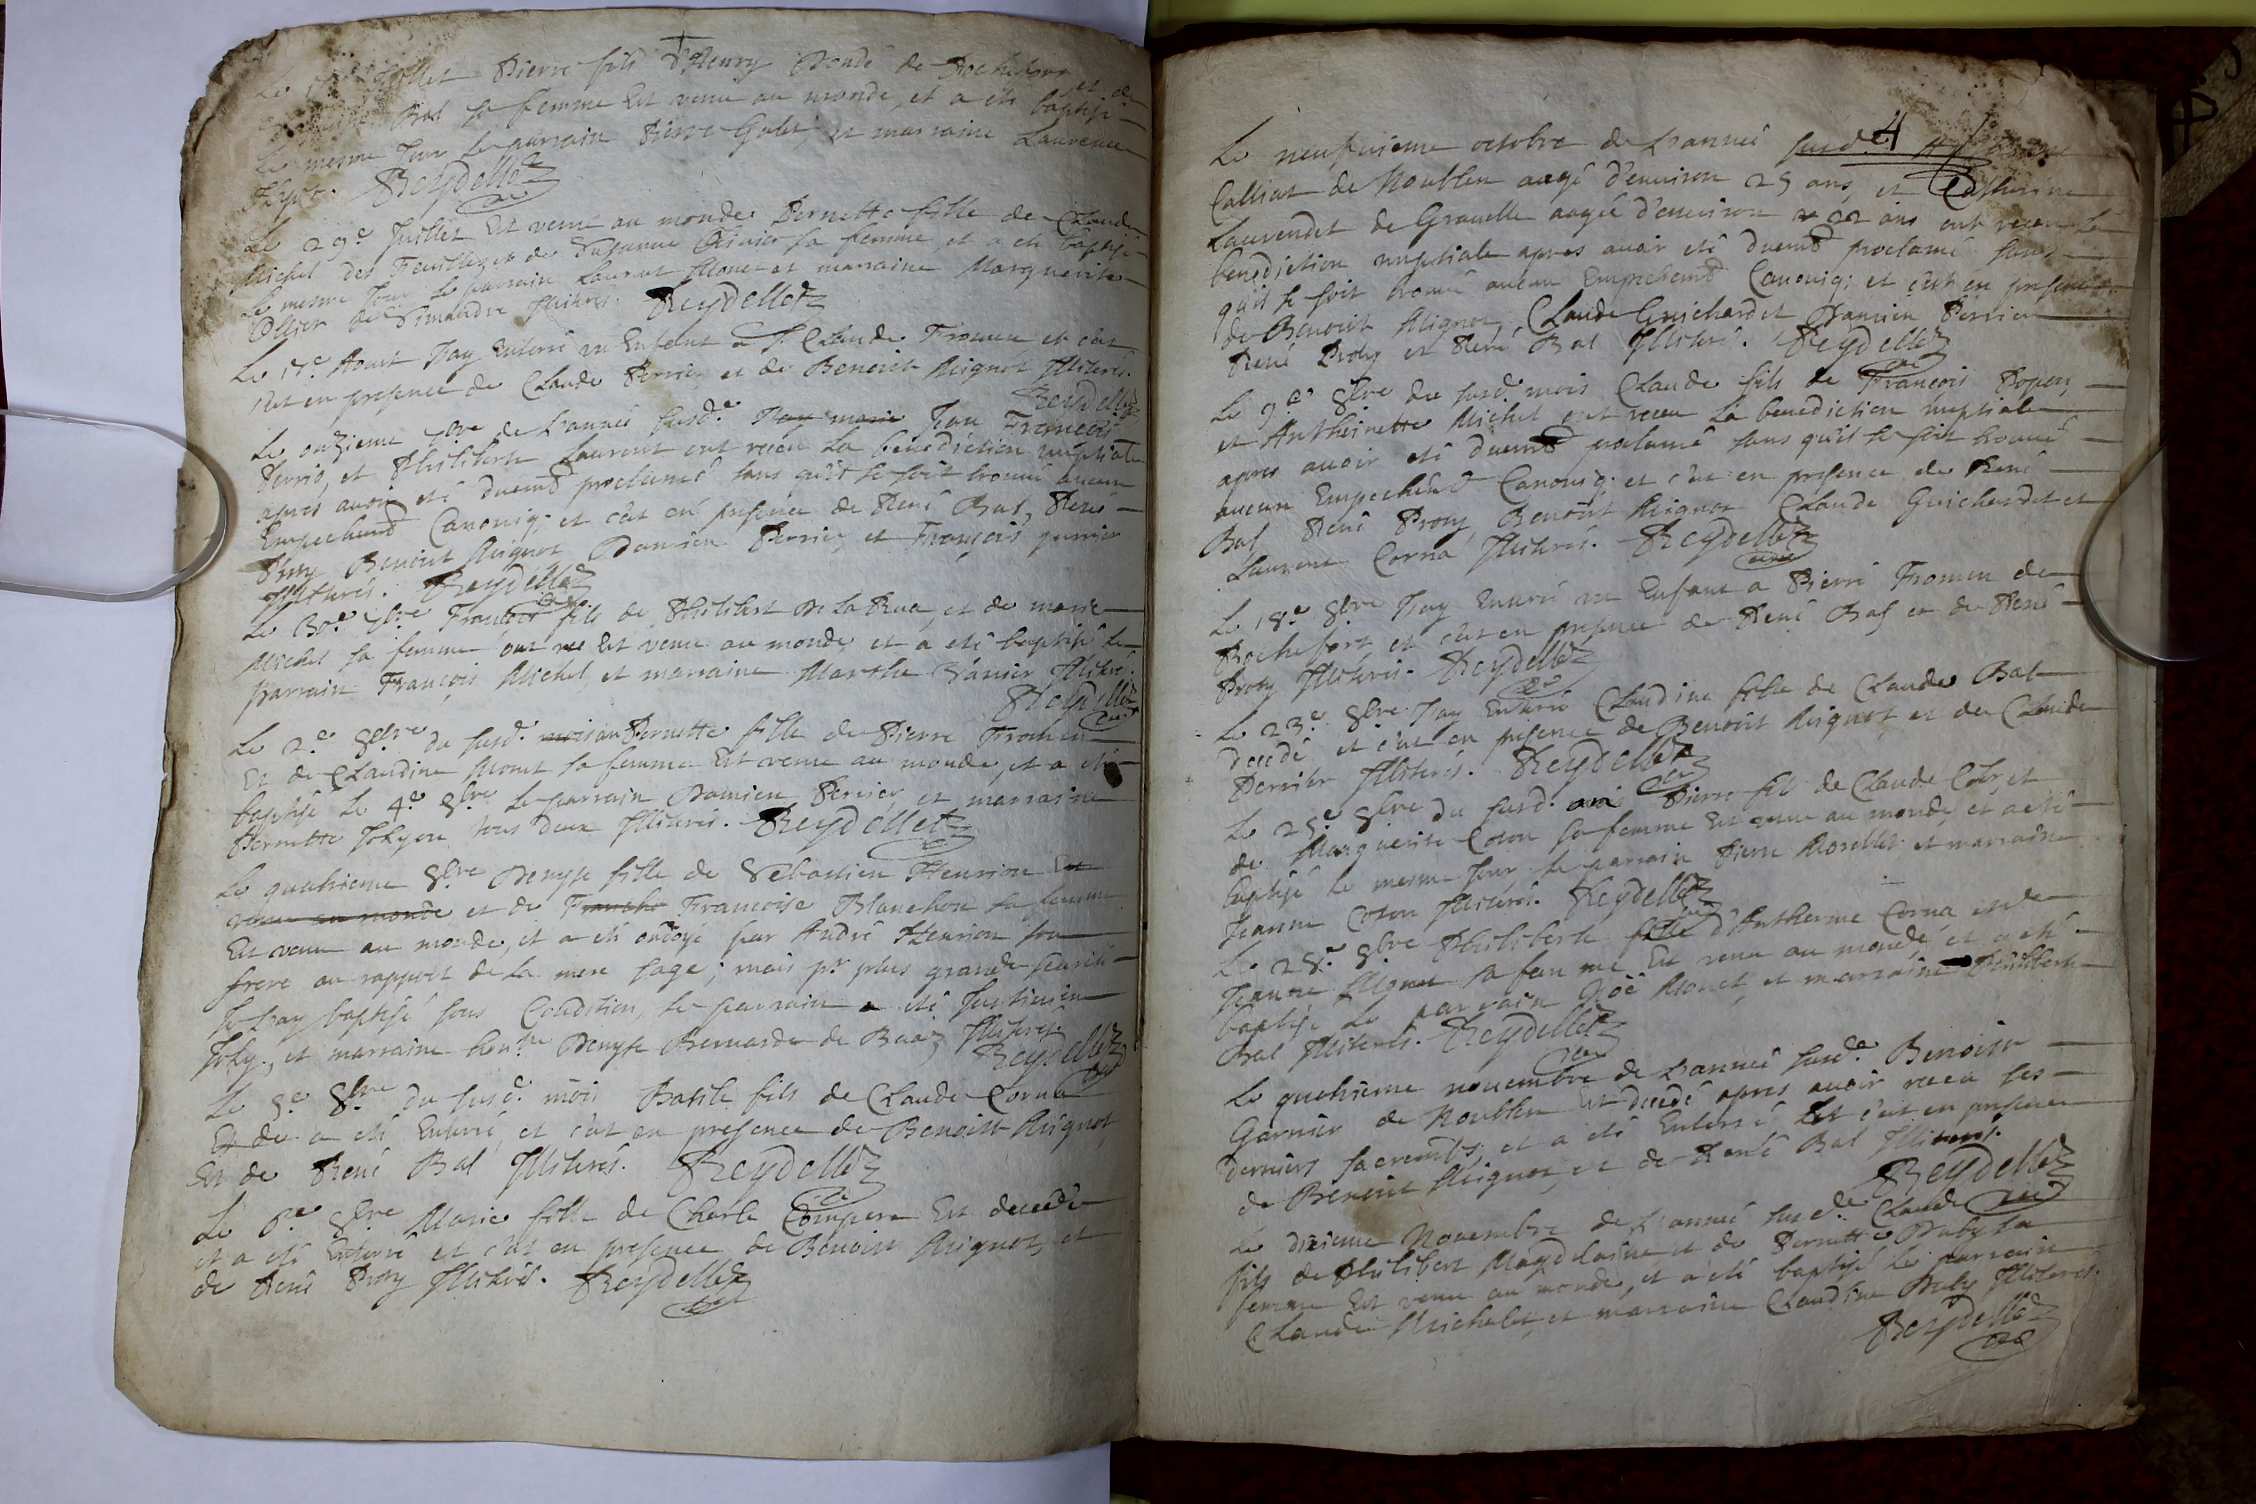 Juillet Pierre fils d'Henry de Rochefort et de
Bal sa femme Est venu au monde, et a eté baptisé
Le mesme Jour Le parrain Pierre Galet et marraine Laurence
Reydellet
Le 29e Juillet Est venue au monde Pernette fille de Claude
Michel des Feuilles et de Susanne sa femme, et a eté baptisé
Le mesme Jour Le parrain Laurent Monet et marraine Marguerite
de Simandre Illiterés. Reydellet
Le 17e Aoust J'ay Enterré un Enfant a St Claude Fromen et c'est
Est en presence de Claude Perrier et de Benoist Mignot Illiterés.
Reydellet
Le onzieme 7bre de L'année susd.e J'ay marié Jean François
et Philiberte Laurent ont receu La benediction nuptiale
apres avoir eté duemt proclamé sans qu'il se soit trouvé aucun
Empechemt Canoniq; et c'est en presence de René Bal, René
Proty Benoist Mignot Damien Perrier, et François
Illiterés. Reydellet
Le 30e 7bre François fils de Philibert De La Rua, et de marie
Michel sa femme Est venu au monde et a eté baptisé Le
parrain François Michel, et marraine Marthe Illiteré.
Reydellet
Le 2e 8bre du susd. mois an Pernette fille de Pierre Fromen
Et de Claudine Monet sa femme Est venue au monde, et a eté
baptisé Le 4e 8bre Le parrain Damien Perrier, et marraine
Pernette tous deux Illiterés. Reydellet
Le quatrieme 8bre Denyse fille de Sebastien Henrion Est
venue au monde et de Francho Francoise Blanchon sa femme
Est venu au monde, et a eté ondoyé par André Henrion son
frere au rapport de La mere sage; mais pr plus grande seureté
Je L'ay baptisé sous Condition, Le parrain a eté
Joly, et marraine hon.ble Denyse Bernarde de Illiterés.
Reydellet
Le 8bre du susd. mois Basile fils de Claude Corna
Et de a eté Enterré, et c'est en presence de Benoist Mignot,
Et de René Bal Illiterés. Reydellet
Le 6e 8bre Marie fille de Charle Compere Est decedée
et a eté Enterré et c'est en presence de Benoist Mignot, et
de René Proty Illiterés. Reydellet
4
Le neufvieme octobre de L'année susd.e
Calliat de Noublen aagé d'environ 25 ans, et Catherine
Laurendet de Gravelle aagée d'environ 22 ans ont receu La
benediction nuptiale apres avoir eté duemt proclamé sans
qu'il se soit trouvé aucun Empechemt Canoniq; et c'est en presence
de Benoist Mignot, Claude Guichardet Damien Perrier
René Proty et René Bal Illiterés. Reydellet
Le 9e 8bre du susd. mois Claude fils de François
et Anthoinette Michel ont receu La benediction nuptiale
apres avoir eté duemt proclamé sans qu'il se soit trouvé
aucun Empechemt Canoniq; et c'est en presence de René
Bal René Proty Benoist Mignot Claude Guichardet et
Laurent Corna Illiterés. Reydellet
Le 18e 8bre J'ay Enterré un Enfant a Pierre Fromen de
Rochefort, et c'est en presence de René Bal et de René
Proty Illiterés. Reydellet
Le 23e 8bre J'ay Enterré Claudine fille de Claude Bal
decedé et c'est en presence de Benoist Mignot, et de Claude
Perrier Illiterés. Reydellet
Le 25e 8bre du susd. Pierre fils de Claude et
de Marguerite Coton sa femme Est venu au monde et a eté
baptisé Le mesme Jour Le parrain Pierre Morellet et marraine
Jeanne Coton Illiterés. Reydellet
Le 28e 8bre Philiberte fille d'Anthoine Corna et de
Jeanne sa femme Est venu au monde, et a eté
baptisé Le parrain Noé Monet, et marraine Philiberte
Bal Illiterés. Reydellet
Le quatrieme novembre de L'année susd.e Benoist
Garnier de Noublen Est decedé apres avoir receu ses
derniers sacremts, et a eté Enterré, et c'est en presence
de Benoist Mignot, et de René Bal Illiterés.
Reydellet
Le dixieme Novembre de L'année susd.e Claude
fils de Philibert Magdelaine et de Pernette sa
femme Est venu au monde, et a eté baptisé Le parrain
Claude Michelet, et marraine Claudine Illiterés.
Reydellet